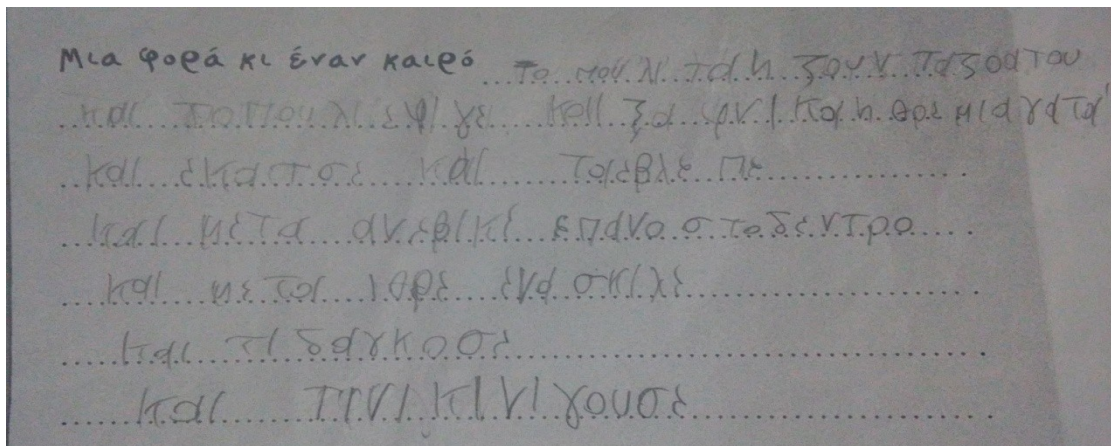 Μια φορά κι έναν καιρό το πουλι ταη ζουν ταζοα του
και το πουλι εφιγε και ξα φνικα ηθρε μια γατα
και εκατσε και ταεβλε πε
και μετα ανεβικε επανο στο δεντρο
και μετα ιθρε ενα σκιλε
και τι δαγκοσε
και τινι κινιγουσε